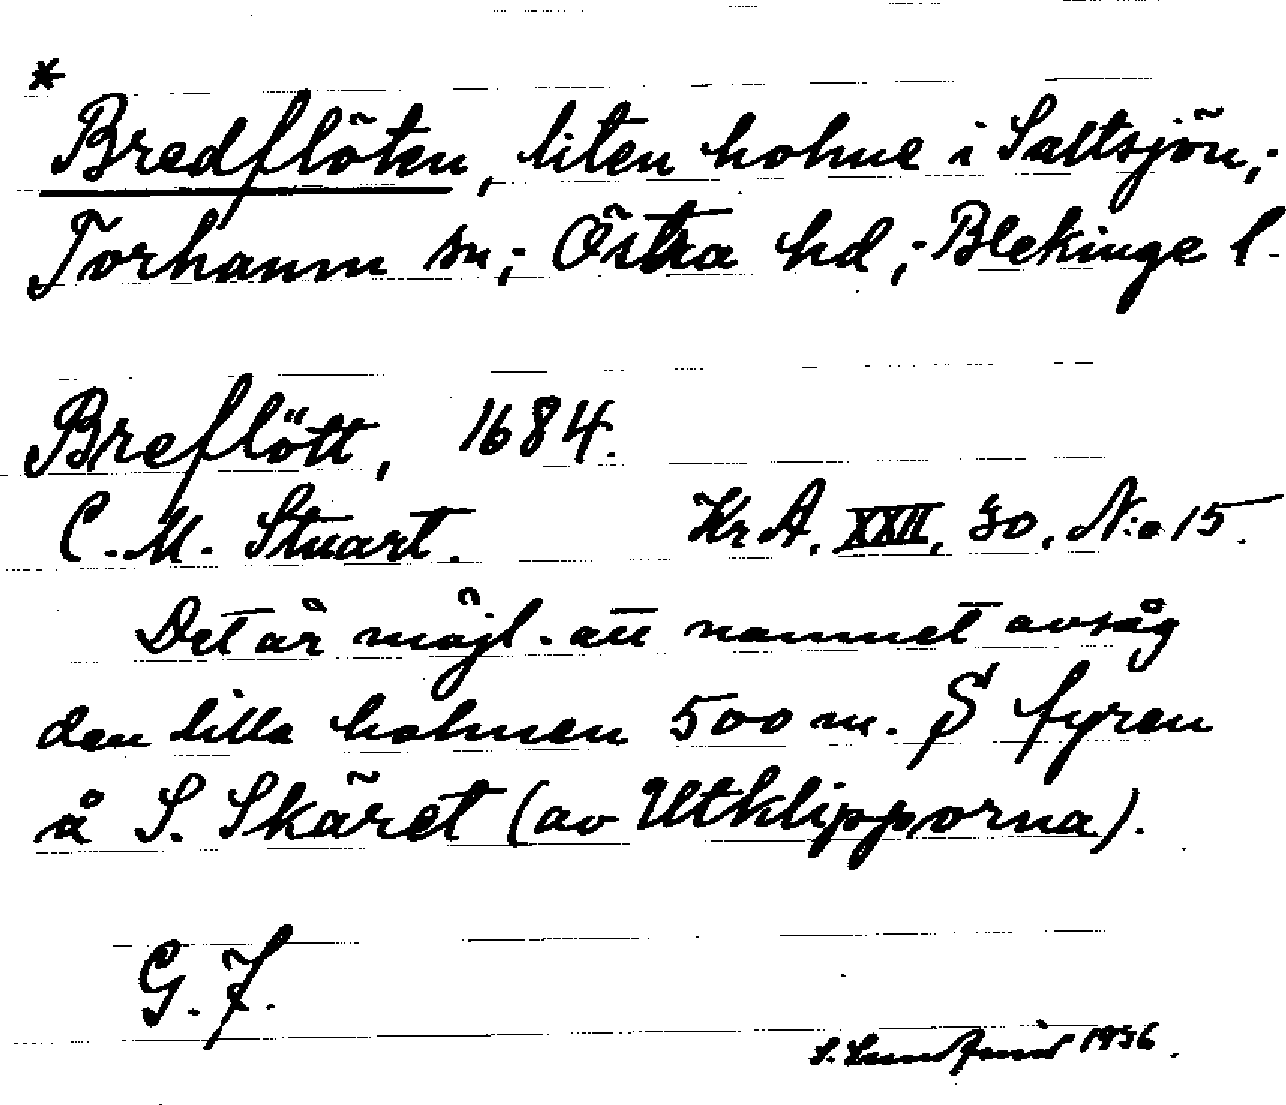 *
Bredflöten, liten holme i Saltsjön,-
Torhamn sn,- Östra hd,- Blekinge l.
Breflött, 1684.
C. M. Stuart. Kr A. XXII, 30, N:o 15.
Det är möjl. att namnet avsåg
den lilla holmen 500 m. S fyren
å S. Skäret (av Utklipporna).
G. F.
S. 1936.